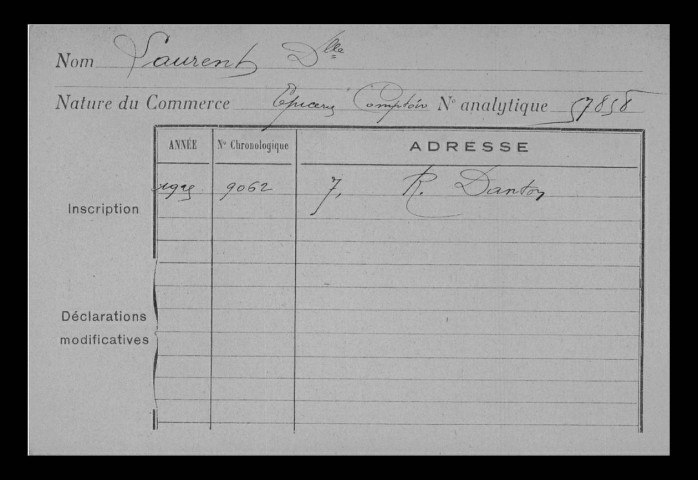 Nom Laurent Dlle
Nature du Commerce Epicerie Comptoir N° analytique 57858
ANNÉE N° Chronologique ADRESSE
9062 7, R. Danton
Inscription
Déclarations
modificatives